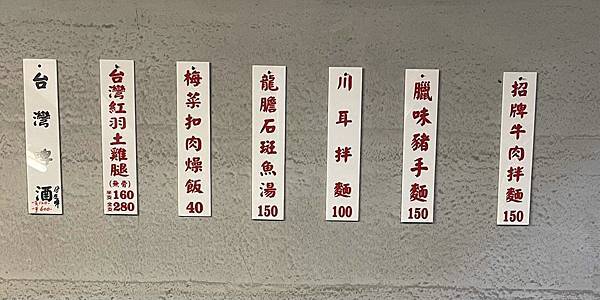 台灣 酒
台灣紅羽土雞腿
(無骨)
半支 160
全支 280
梅菜扣肉燥飯
40
龍膽石斑魚湯
150
川耳拌麵
100
臘味豬手麵
150
招牌牛肉拌麵
150